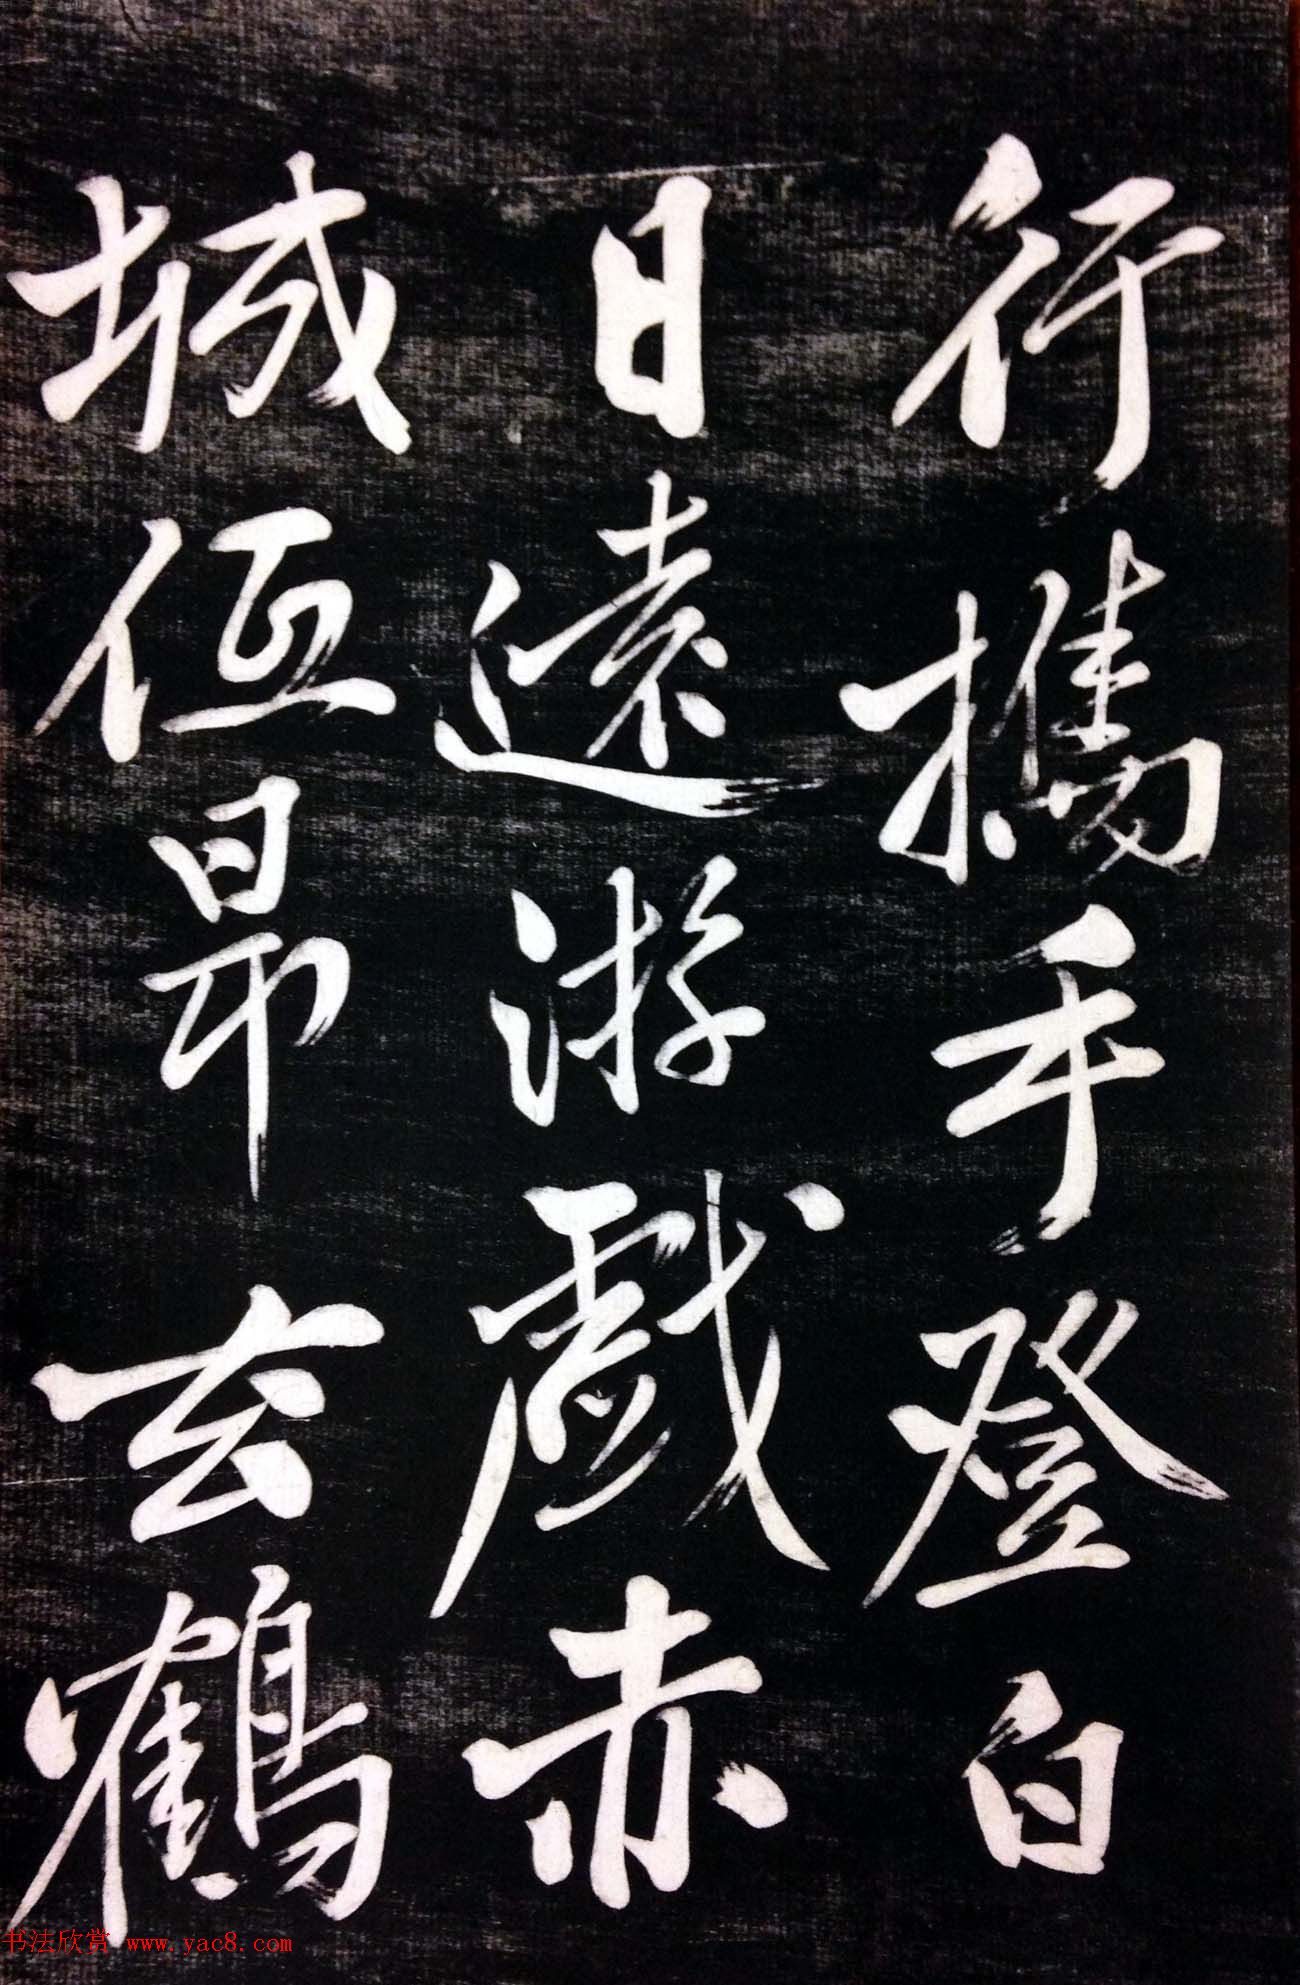 行攜手登白
日遠游戲赤
城低昂玄鶴
书法欣赏 www.yac8.com